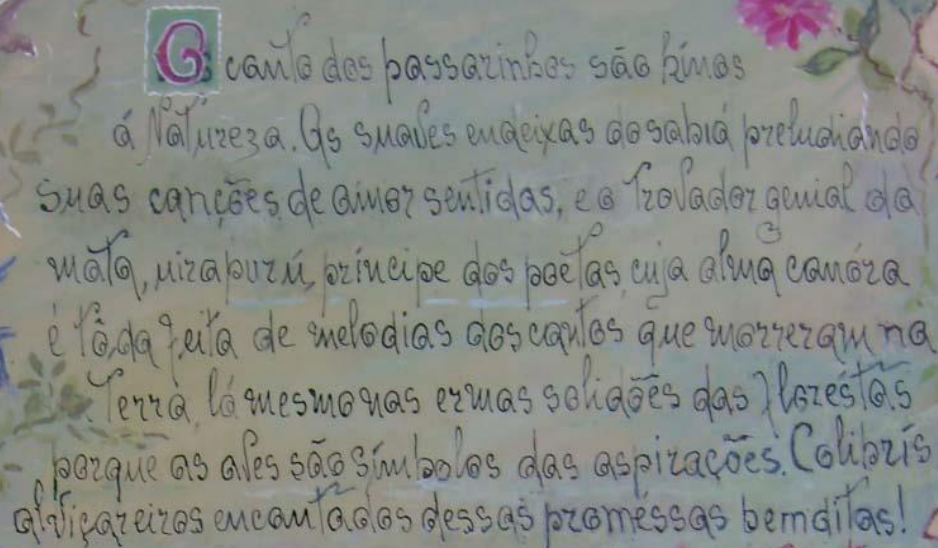 O canto dos passarinhos são hinos
á Natureza. Os suaves endeixas do sabiá preludiando
suas canções de amor sentidas, e o trovador genial da
mata, uirapurú, príncipe dos poetas, cuja alma canóra
é tôda feita de melodias dos cantos que morreram na
Terra, lá mesmo nas ermas solidões das florestas
porque as aves são símbolos das aspirações. Colibrís
alviçareiros encantados dessas proméssas bemditas!